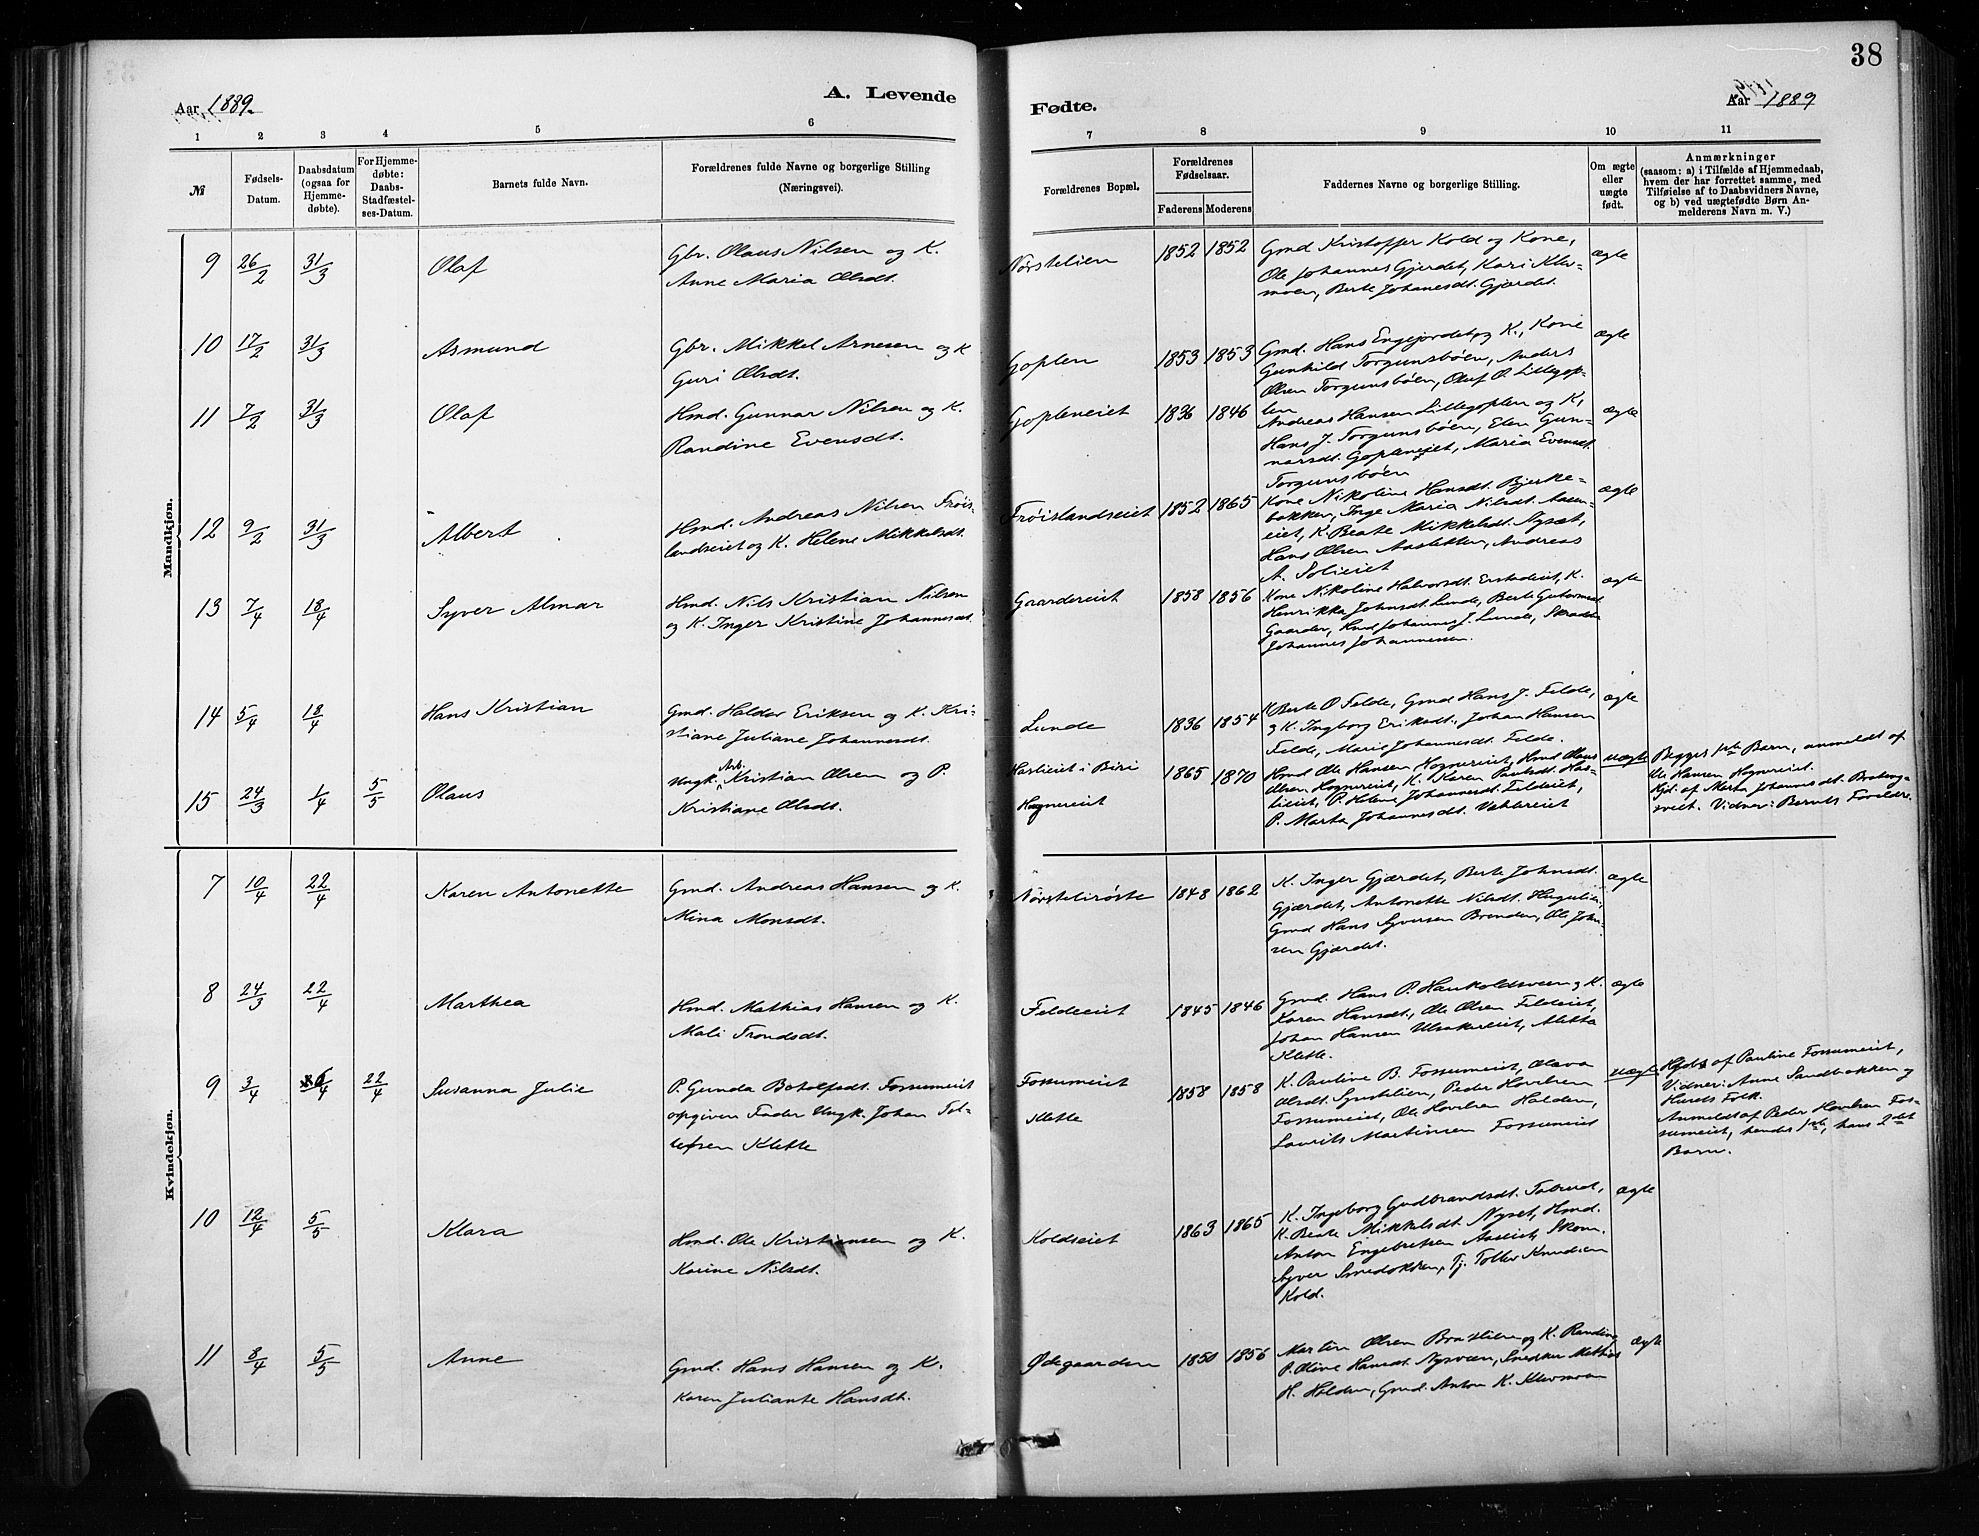 38
Aar 1889. A. Levende Fødte. Aar 1889
1 2 3 4 5 6 7 8 9 10 11
№
Fødsels-Datum.
Daabsdatum (ogsaa for Hjemme-døbte).
For Hjemme-døbte: Daabs-Stadfæstel-ses-Datum.
Barnets fulde Navn.
Forældrenes fulde Navne og borgerlige Stilling
(Næringsvei).
Forældrenes Bopæl.
Forældrenes Fødselsaar.
Faderens Moderens
Faddernes Navne og borgerlige Stilling.
Om ægte eller uægte født.
Anmærkninger
(saasom: a) i Tilfælde af Hjemmedaab,
hvem der har forrettet samme, med
Tilføielse af to Daabsvidners Navne,
og b) ved uægtefødte Børn An-
melderens Navn m. V.)
Mandkjøn.
9 26/2 31/3 Olaf
Gbr. Olaus Nilsen og K.
Anne Maria Olsdt.
Nørstelien 1852 1852
Gmd Kristoffer Kold og Kone,
Ole Johannes Gjerdet, Kari Klev-
moen, Berte Johanesdt. Gjærdet.
ægte
10 17/2 31/3 Asmund
Gbr. Mikkel Arnesen og K
Guri Olsdt.
Goplen 1853 1853
Gmd. Hans Engejordet og K., Kone
Gunhild Torgunsbøen, Anders
Olsen Torgunsbøen, Oluf O. Lillegop-
len
ægte
11 7/2 31/3 Olaf
Hmd. Gunnar Nilsen og K.
Randine Evensdt.
Gopleneiet 1836 1846
Andreas Hansen Lillegoplen og K,
Hans J. Torgunsbøen, Elen Gun-
narsdt. Gopleneiet, Maria Evensdt.
Torgunsbøen
ægte
12 9/2 31/3 Albert
Hmd. Andreas Nilsen Frøis-
landseiet og K. Helene Mikkelsdt.
Frøislandseiet 1852 1865
Kone Nikoline Hansdt. Bjerke-
bakken, Inge Maria Nilsdt. Aasen-
eiet, K. Beate Mikkelsdt. Nysæt,
Hans Olsen Aasletten, Andreas
A. Solieiet
ægte
13 7/4 18/4 Syver Almar
Hmd. Nils Kristian Nilsen
og K. Inger Kristine Johannesdt.
Gaardereiet 1858 1856
Kone Nikoline Halvorsdt. Erstadeiet, K.
Henrikka Johnsdt. Lunde, Berte Gutormsd.
Gaarder, Hmd Johannes J. Lunde,
Johannes Johannessen.
ægte
14 5/4 18/4 Hans Kristian
Gmd. Haldor Eriksen og K. Kri-
stiane Juliane Johannesdt.
Lunde 1836 1854
K Berte O Felde, Gmd Hans J. Felde,
og K. Ingborg Eriksdt. Johan Hansen
Felde, Marie Johannesdt. Felde.
ægte
15 24/3 1/4 5/5 Olaus
Ungk. Arb. Kristian Olsen og P.
Kristiane Olsdt.
Haslieiet i Biri
Hognereiet
1865 1870
Hmd Ole Hansen Hognereiet, Hmd Hans
Olsen Hognereiet, K. Karen Paulsdt. Has-
lieiet, P. Helene Johannesdt. Feldeiet,
P. Marta Johannesdt.
uægte
Begges 1ste Barn, anmeldt af
Ole Hansen Hognereiet.
Hjd. af Marta Johannesdt.
Vidner: Barnets Forældre.
Kvindekjøn.
7 10/4 22/4 Karen Antonette
Gmd. Andreas Hansen og K.
Mina Monsdt.
Nørstelirøste 1848 1862
K. Inger Gjærdet, Berte Johnsdt.
Gjærdet, Antonette Nilsdt. Haugslien,
Gmd Hans Syversen Brenden, Ole John-
sen Gjærdet.
ægte
8 24/3 22/4 Marthea
Hmd. Mathias Hansen og K.
Mali Trondsdt.
Feldeeiet 1845 1846
Gmd. Hans P. Haukoldsveen og K.
Karen Hansdt, Ole Olsen Feldeiet,
Johan Hansen Ulsakereiet, Aletta
Klette.
ægte
9 3/4 6/4 22/4 Susanna Julie
P. Gunda Botolfsdt. Fossumeiet
opgiven Fader Ungk. Johan Tol-
lefsen Klette
Fossumeiet
Klette
1858 1858
K. Pauline B. Fossumeiet, Olava
Olsdt. Synstelien, Peder Hovelsen
Fossumeiet, Ole Hovelsen Holden,
Laurits Martinsen Fossumeiet
uægte
Hjdbs af Pauline Fossumeiet,
Vidner: Anne Sandbakken og
Husets Folk.
Anmeldt af Peder Hovelsen Fos-
sumeiet, hendes 1ste, hans 2det
Barn.
10 12/4 5/5 Klara
Hmd. Ole Kristiansen og K.
Karine Nilsdt.
Koldseiet 1863 1865
K. Ingeborg Gudbrandsdt.
K. Beate Mikkelsdt Nyset, Hmd.
Anton Engebretsen Aaseiet, Skom.
Syver Smedokken, Tj. Tollev Knudsen
Kold.
ægte
11 8/4 5/5 Anne
Gmd. Hans Hansen og K.
Karen Juliante Hansdt.
Ødegaarden 1850 1856
Martin Olsen Bratlien og K. Randine
P. Oline Hansdt. Nysveen, Snedker Mathias
H. Holden, Gmd. Anton K. Klevmoen
ægte